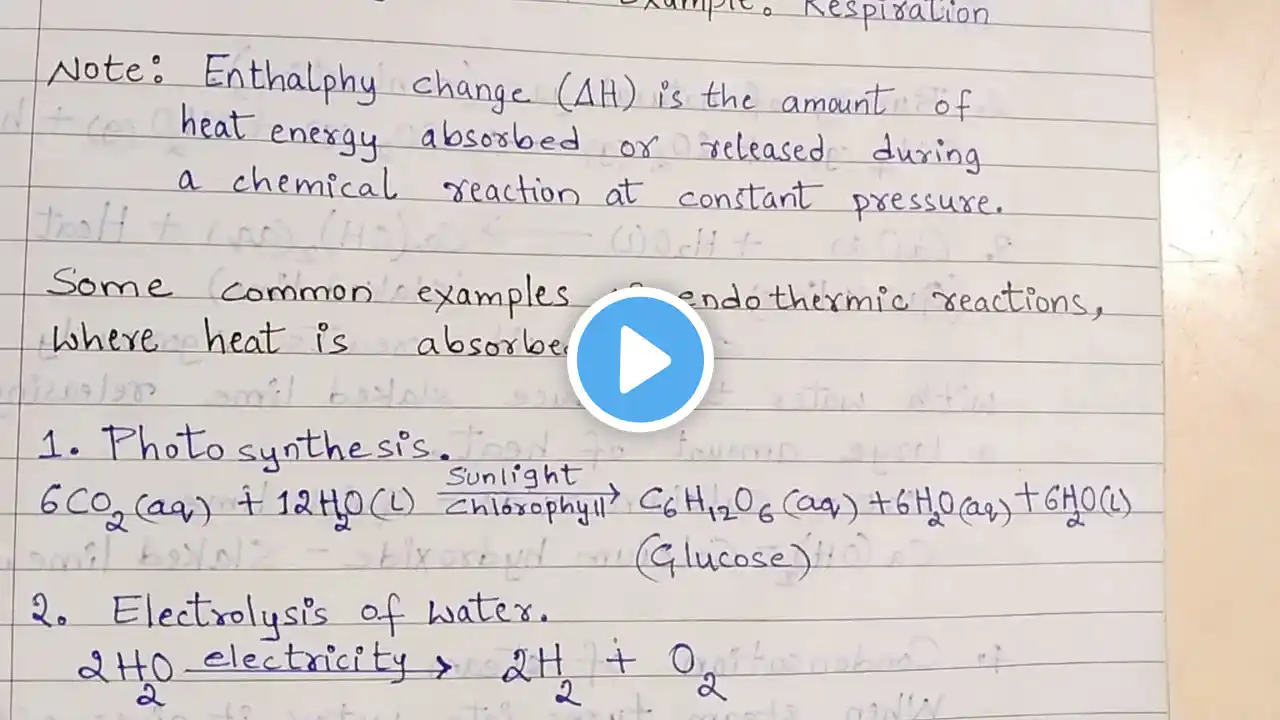 Example: Respiration
Note: Enthalphy change (ΔH) is the amount of
heat energy absorbed or released during
a chemical reaction at constant pressure.
Some common examples endothermic reactions,
where heat is absorbed
1. Photosynthesis.
6CO₂(aq) + 12H₂O(l) Sunlight Chlorophyll → C₆H₁₂O₆(aq) + 6H₂O(aq) + 6H₂O(l)
(Glucose)
2. Electrolysis of water.
2H₂O electricity → 2H₂ + O₂